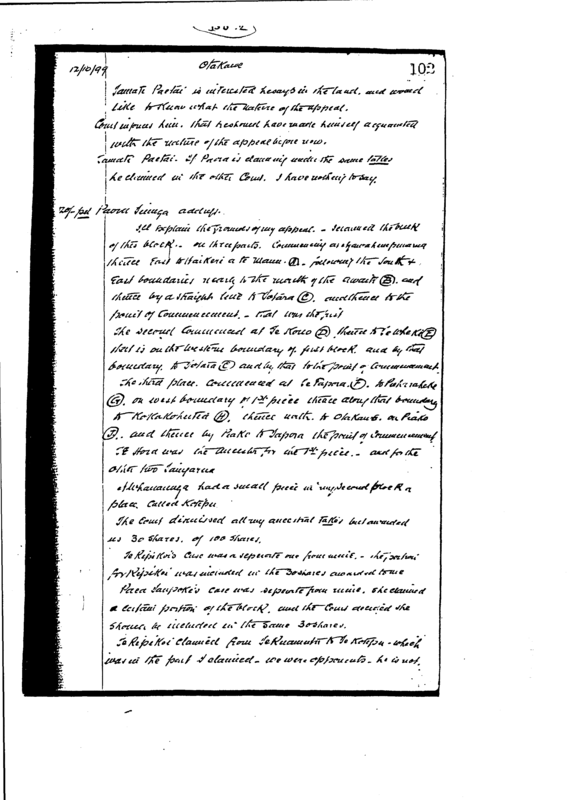 12/10/99 Otakawe 102
Tamate Paetai is interested he says in the land. and would
like to know what the nature of the appeal.
Court informs him. that he should have made himself acquainted
with the nature of the appeal before now.
Tamate Paetai. If Paora is claiming under the same takes
he claimed in the other Court. I have nothing to say.
Paora address.
I'll explain the grounds of my appeal. - I claimed the bulk
of this block. - on three parts. Commencing at
thence East to Waikeri a te (A). following the South &
East boundaries nearly to the mouth of the (B). and
thence by a straight line to Totara (C). and thence to the
point of Commencement. - that was the first
The second Commenced at Te Horo (D). thence to (E)
that is on the western boundary of first block. and by that
boundary. to Totara (C) and by that to the point of Commencement.
The third place. commenced at Te Tapora. (F). to
(G). on west boundary of 1st piece thence along that boundary
to (H). thence north. to on Piako
and thence by Piako to Tapora the point of Commencement.
was the Ancestor for the 1st piece. - and for the
other two
had a small piece in my second block a
place. called Kotipu
The Court dismissed all my ancestral takes but awarded
us 30 shares. of 100 shares.
Te Ripikoi's case was a separate one from mine. - the portion
for Ripikoi was included in the 30 shares awarded to me
case was separate from mine. She claimed
a certain portion of the block. and the Court decided she
should be included in the same 30 shares.
Te Ripikoi claimed from to Te Kotipu - which
was in the part I claimed - we were opponents - he is not.